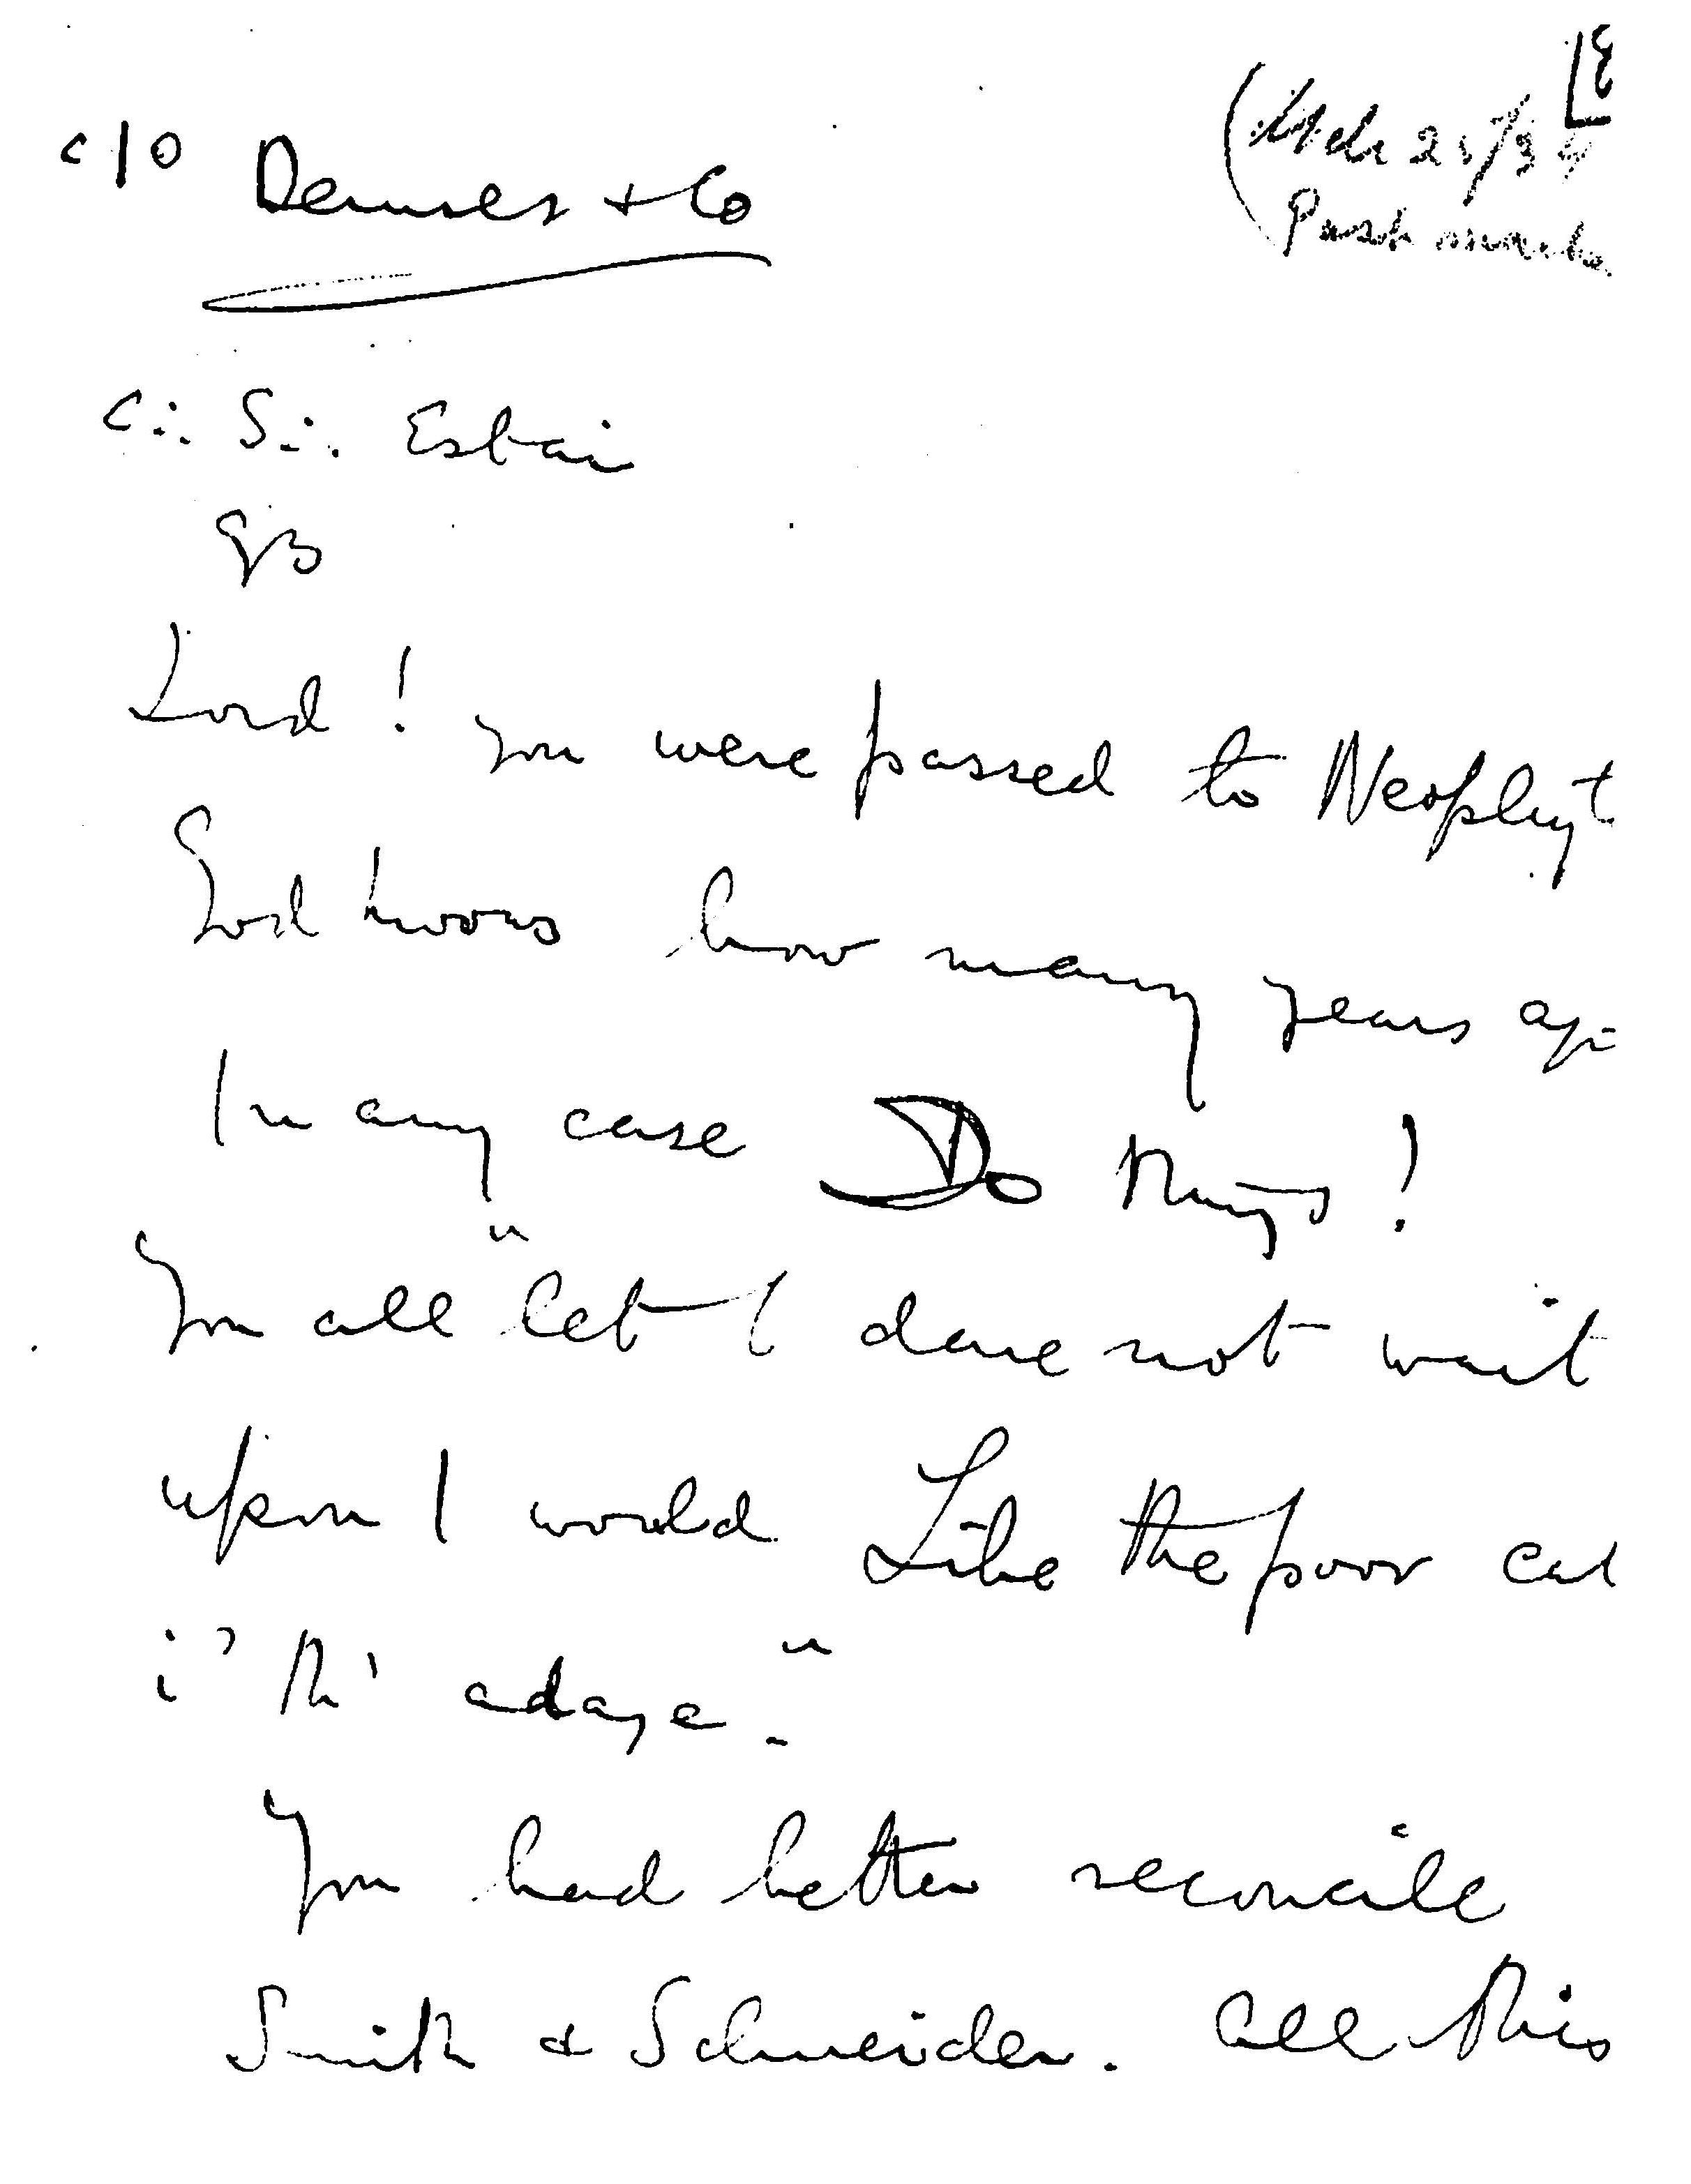 c/o Demsex & Co
(Mch 21/34
Post mark
C∴ S∴ Estai
93
Lord! you were passed to Neophyt
God knows how many years ago
In any case Do things!
You all "let I dare not wait
upon I would Like the poor cat
i' th' adage."
You had better reconcile
Smith & Schneider. All this